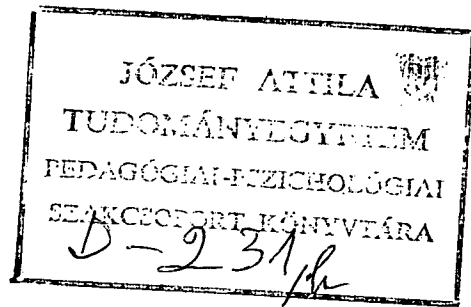 JÓZSEF ATTILA
TUDOMÁNYEGYETEM
PEDAGÓGIAI-PSZICHOLÓGIAI
SZAKCSOPORT KÖNYVTÁRA
D-231